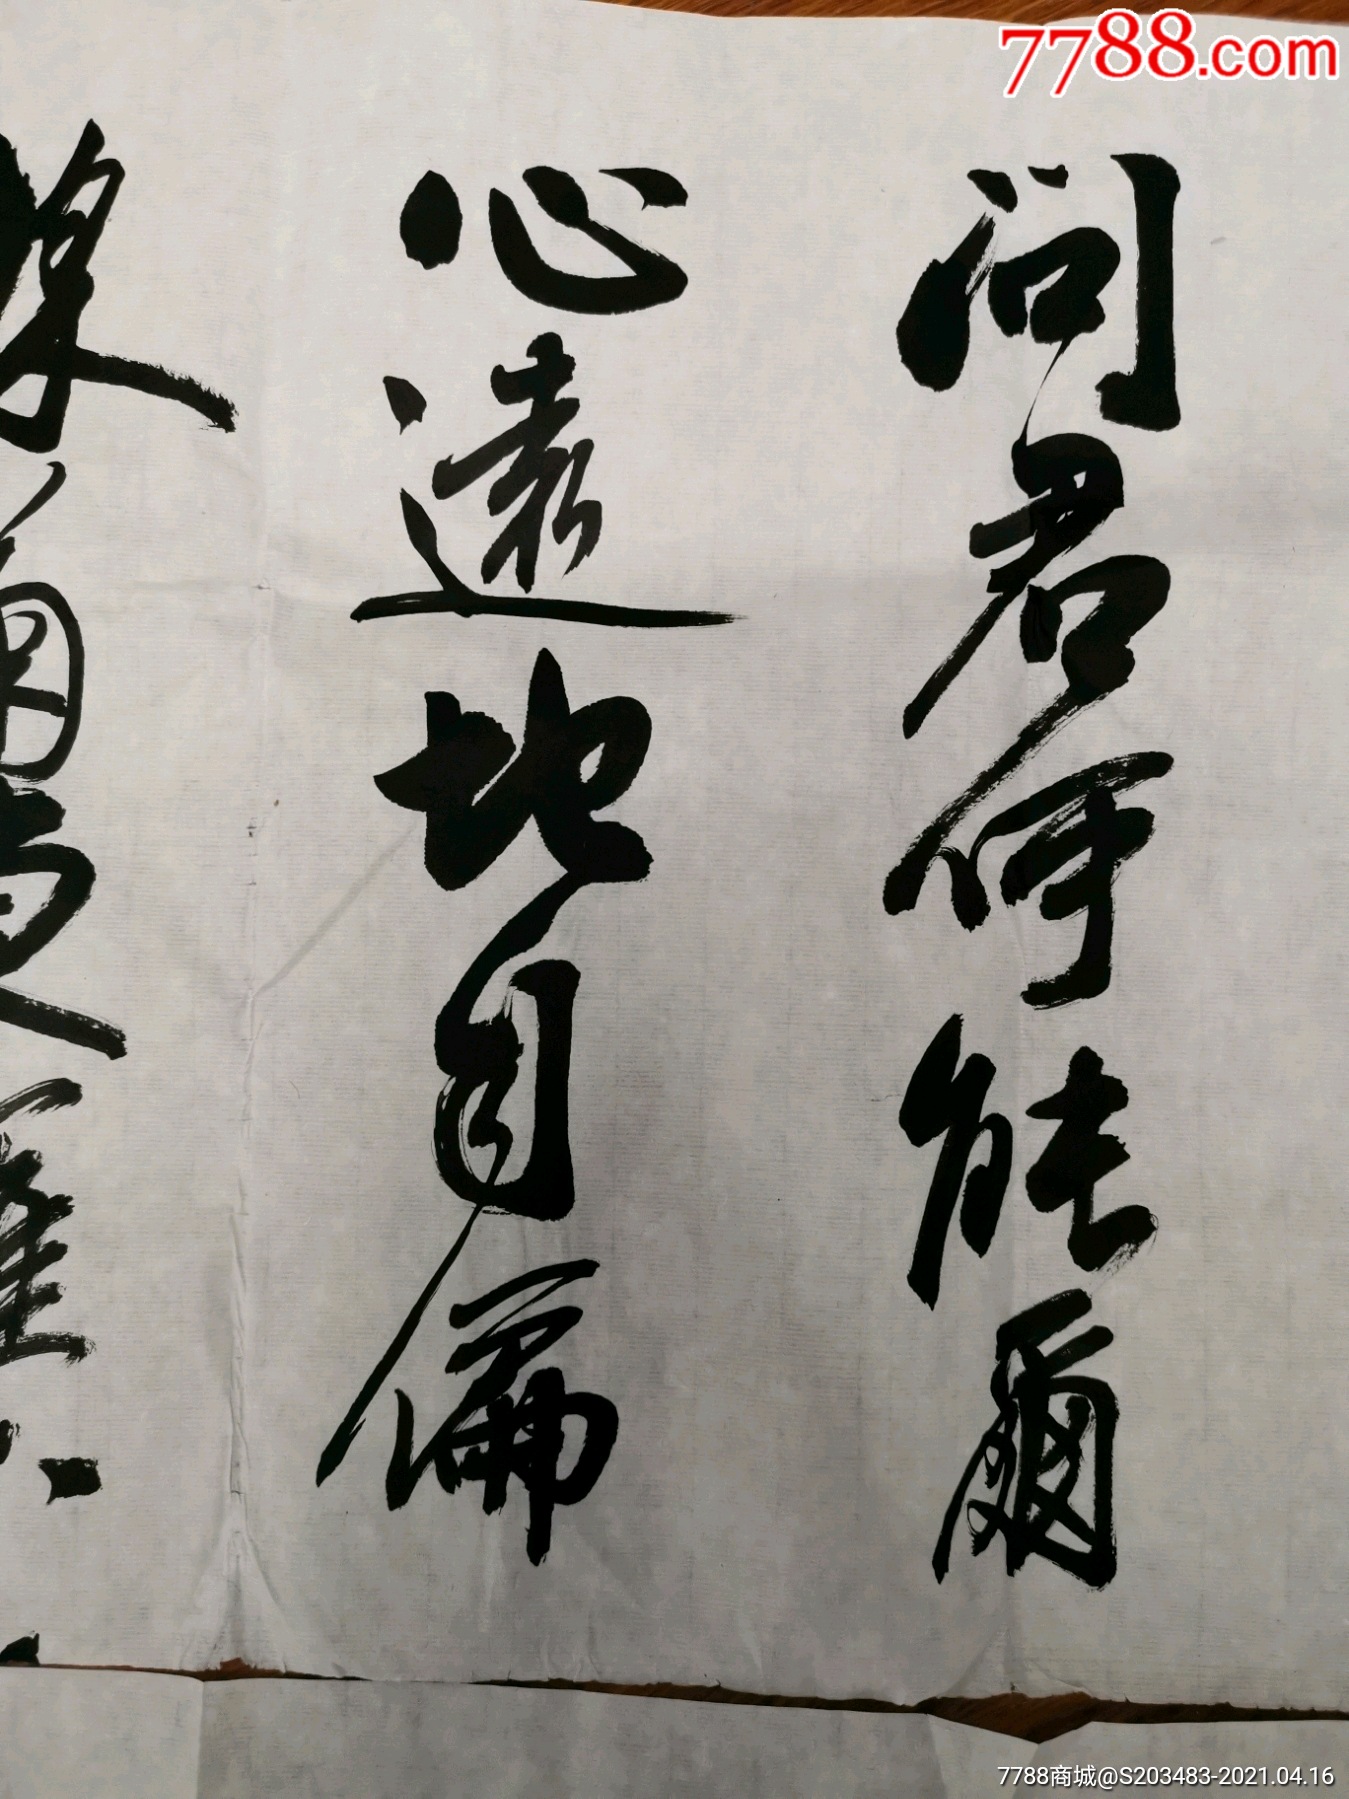 7788.com
問君何能爾
心遠地自偏
採菊東籬下
7788商城@S203483-2021.04.16